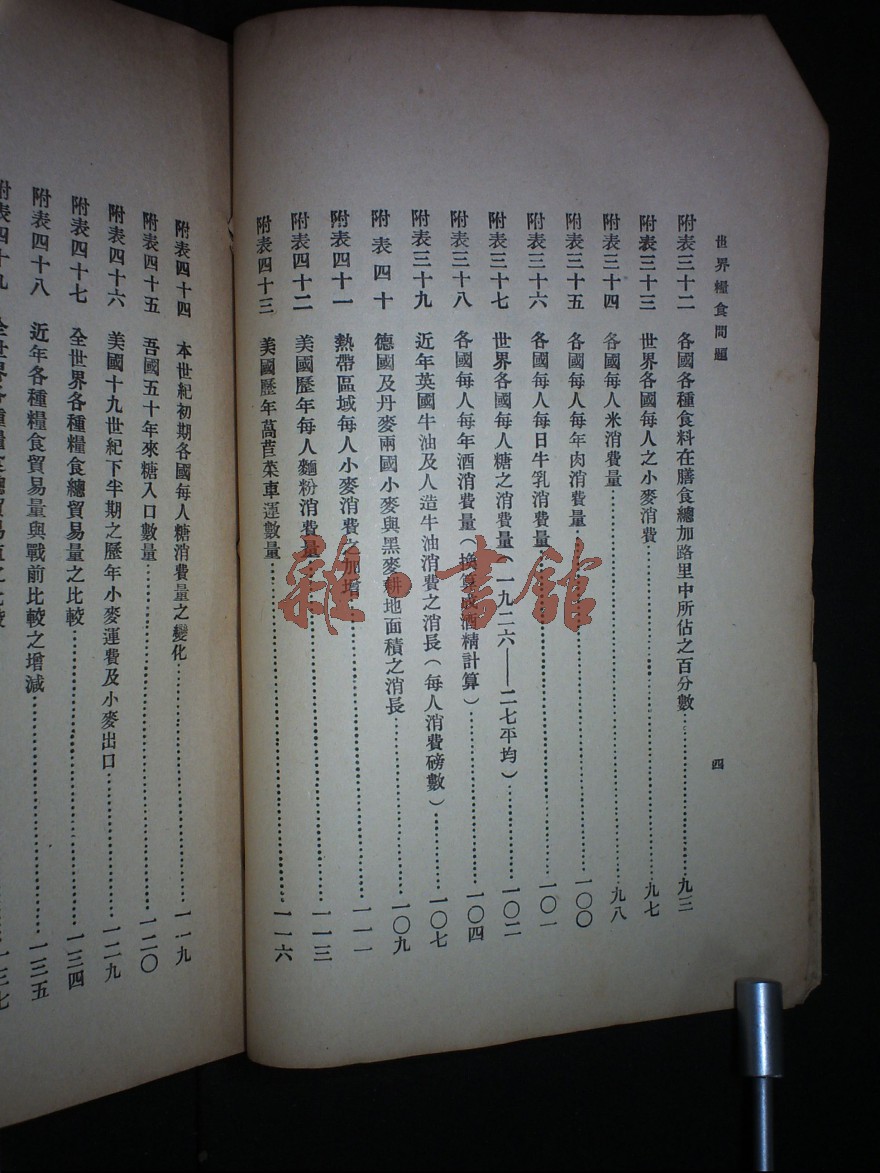 世界糧食問題
四
附表三十二 各國各種食料在膳食總加路里中所佔之百分數 九三
附表三十三 世界各國每人之小麥消費 九七
附表三十四 各國每人米消費量 九八
附表三十五 各國每人每年肉消費量 一〇〇
附表三十六 各國每人每日牛乳消費量 一〇一
附表三十七 世界各國每人糖之消費量(一九二六——二七平均) 一〇二
附表三十八 各國每人每年酒消費量(換算成酒精計算) 一〇四
附表三十九 近年英國牛油及人造牛油消費之消長(每人消費磅數) 一〇七
附表四十 德國及丹麥兩國小麥與黑麥耕地面積之消長 一〇九
附表四十一 熱帶區域每人小麥消費之加增 一一一
附表四十二 美國歷年每人麵粉消費量 一一三
附表四十三 美國歷年萵苣菜車運數量 一一六
附表四十四 本世紀初期各國每人糖消費量之變化 一一九
附表四十五 吾國五十年來糖入口數量 一二〇
附表四十六 美國十九世紀下半期之歷年小麥運費及小麥出口 一二九
附表四十七 全世界各種糧食總貿易量之比較 一三四
附表四十八 近年各種糧食貿易量與戰前比較之增減 一三五
附表四十九 全世界各種糧食總貿易 之比較 一三七
雜·書館